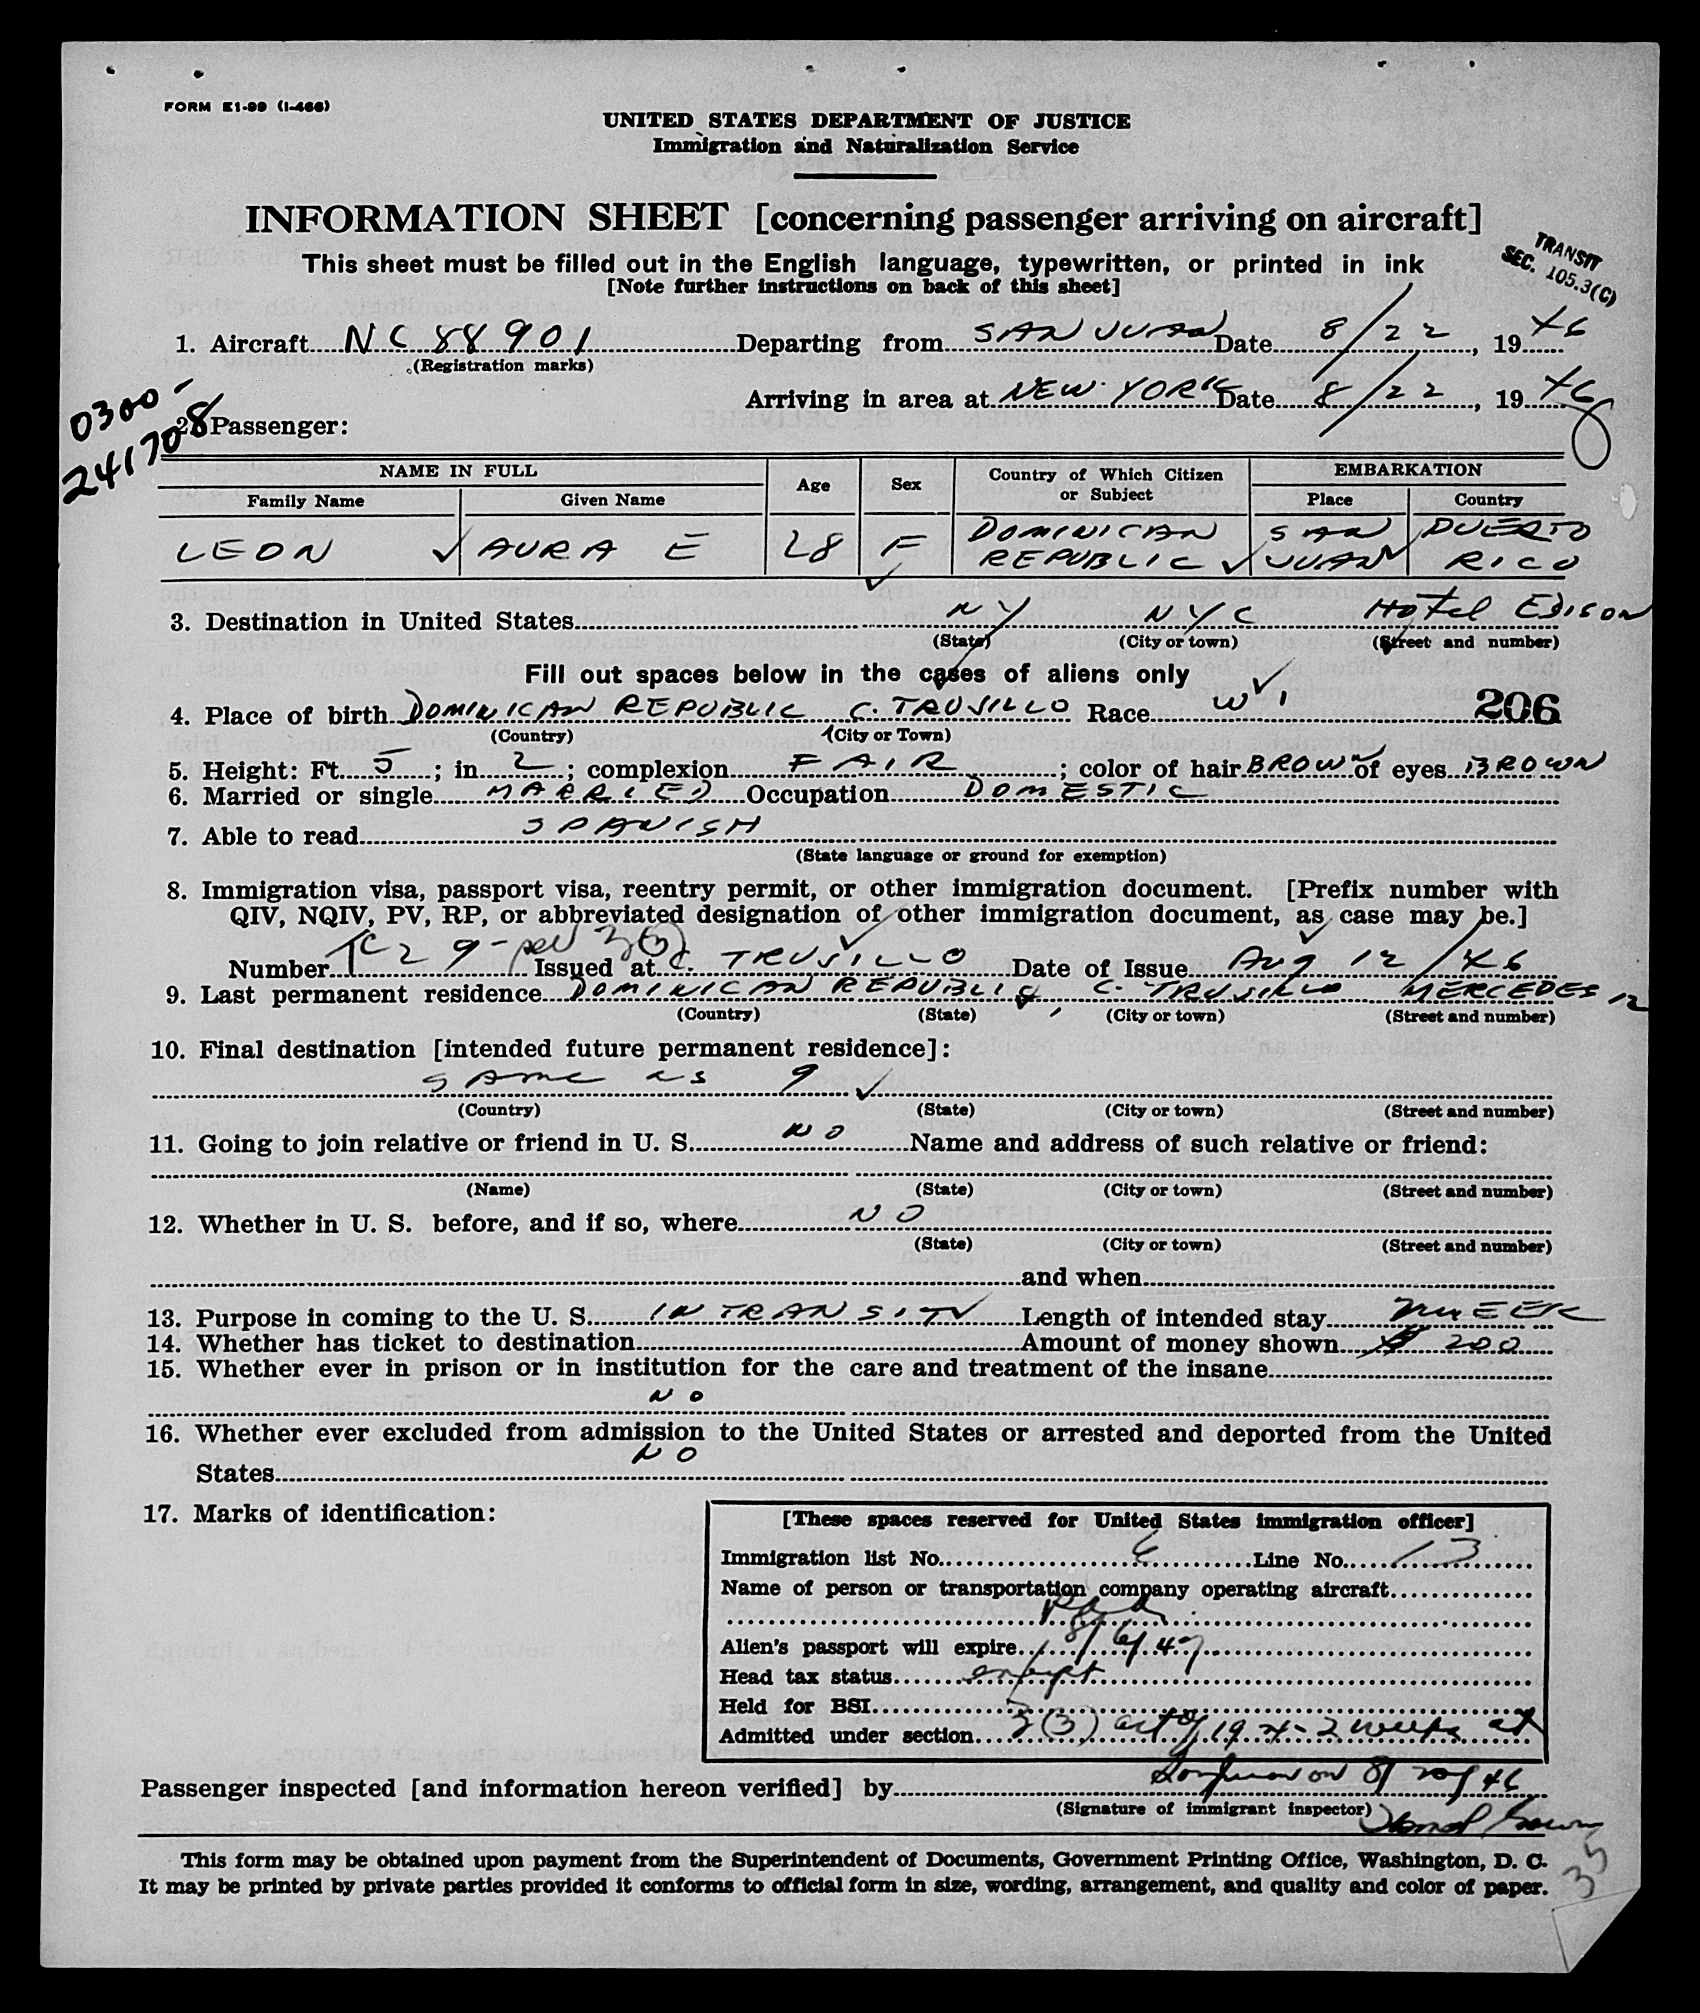 FORM E1-99 (I-466)
UNITED STATES DEPARTMENT OF JUSTICE
Immigration and Naturalization Service
INFORMATION SHEET [concerning passenger arriving on aircraft]
This sheet must be filled out in the English language, typewritten, or printed in ink
[Note further instructions on back of this sheet]
TRANSIT
SEC. 105.3(C)
1. Aircraft NC 88901 Departing from SAN JUAN Date 8/22, 1946
(Registration marks)
Arriving in area at NEW YORK Date 8/22, 1946
0300-
241708
2. Passenger:
NAME IN FULL Age Sex Country of Which Citizen or Subject EMBARKATION
Family Name Given Name Place Country
LEON AURA E 28 F DOMINICAN REPUBLIC SAN JUAN PUERTO RICO
3. Destination in United States NY NYC Hotel EDISON
(State) (City or town) (Street and number)
Fill out spaces below in the cases of aliens only
4. Place of birth DOMINICAN REPUBLIC C. TRUJILLO Race W 206
(Country) (City or Town)
5. Height: Ft. 5; in. 2; complexion FAIR; color of hair BROWN of eyes BROWN
6. Married or single MARRIED Occupation DOMESTIC
7. Able to read SPANISH
(State language or ground for exemption)
8. Immigration visa, passport visa, reentry permit, or other immigration document. [Prefix number with
QIV, NQIV, PV, RP, or abbreviated designation of other immigration document, as case may be.]
Number TC 29 Issued at C. TRUJILLO Date of Issue Aug 12/46
9. Last permanent residence DOMINICAN REPUBLIC, C. TRUJILLO MERCEDES 12
(Country) (State) (City or town) (Street and number)
10. Final destination [intended future permanent residence]:
SAME as 9
(Country) (State) (City or town) (Street and number)
11. Going to join relative or friend in U. S. NO Name and address of such relative or friend:
(Name) (State) (City or town) (Street and number)
12. Whether in U. S. before, and if so, where NO
(State) (City or town) (Street and number)
and when
13. Purpose in coming to the U. S. IN TRANSIT Length of intended stay WEEK
14. Whether has ticket to destination Amount of money shown $ 200
15. Whether ever in prison or in institution for the care and treatment of the insane
NO
16. Whether ever excluded from admission to the United States or arrested and deported from the United
NO
States
17. Marks of identification:
[These spaces reserved for United States immigration officer]
Immigration list No. 6 Line No. 13
Name of person or transportation company operating aircraft
Alien's passport will expire 8/6/47
Head tax status exempt
Held for BSI
Admitted under section 3(3) act of 1924 - 2 weeks at
San Juan on 8/20/46
Passenger inspected [and information hereon verified] by
(Signature of immigrant inspector)
This form may be obtained upon payment from the Superintendent of Documents, Government Printing Office, Washington, D. C.
It may be printed by private parties provided it conforms to official form in size, wording, arrangement, and quality and color of paper.
35